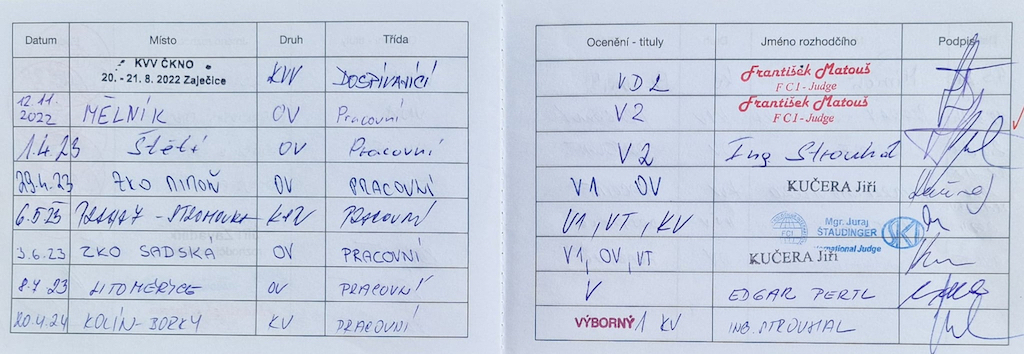 Datum Místo Druh Třída Ocenění - tituly Jméno rozhodčího Podpis
KVV ČKNO
20. - 21. 8. 2022 Zaječice KVV DOSPÍVAJÍCÍ VD1 František Matouš
FCI - Judge
12.11.
2022 MĚLNÍK OV Pracovní V2 František Matouš
FCI - Judge
1.4.23 Štětí OV Pracovní V2 Ing Strouhal
29.4.23 ZKO MIMOŇ OV PRACOVNÍ V1 OV KUČERA Jiří
PRACOVNÍ V1, VT, KV Mgr. Juraj
ŠTAUDINGER
International Judge
FCI
SKJ
3.6.23 ZKO SADSKA OV PRACOVNÍ V1, OV, VT KUČERA Jiří
8.7.23 LITOMĚŘICE OV PRACOVNÍ V EDGAR PERTL
20.4.24 KOLÍN-BORKY KV PRACOVNÍ VÝBORNÝ 1 KV ING. STROUHAL